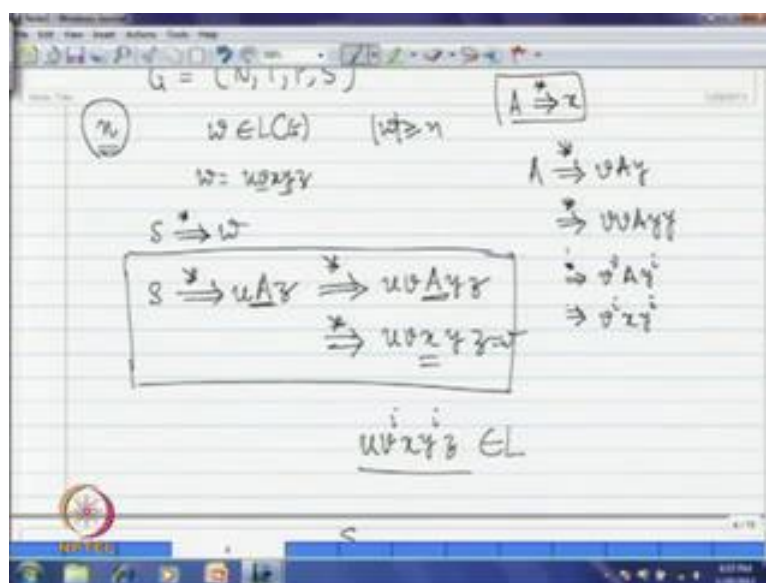 G = (N, T, P, S)
n w ∈ L(G) |w| ≥ n
w = uvxyz
S ⇒* w
S ⇒* uAz ⇒* uvAyz
⇒* uvxyz = w
A ⇒* x
A ⇒* vAy
⇒* vvAyy
⇒* vⁱAyⁱ
⇒ vⁱxyⁱ
uvⁱxyⁱz ∈ L
S
NPTEL